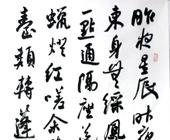 昨夜星辰昨夜
東身無綵鳳
一點通隔座送
蠟燈紅嗟余聽
臺類轉蓬